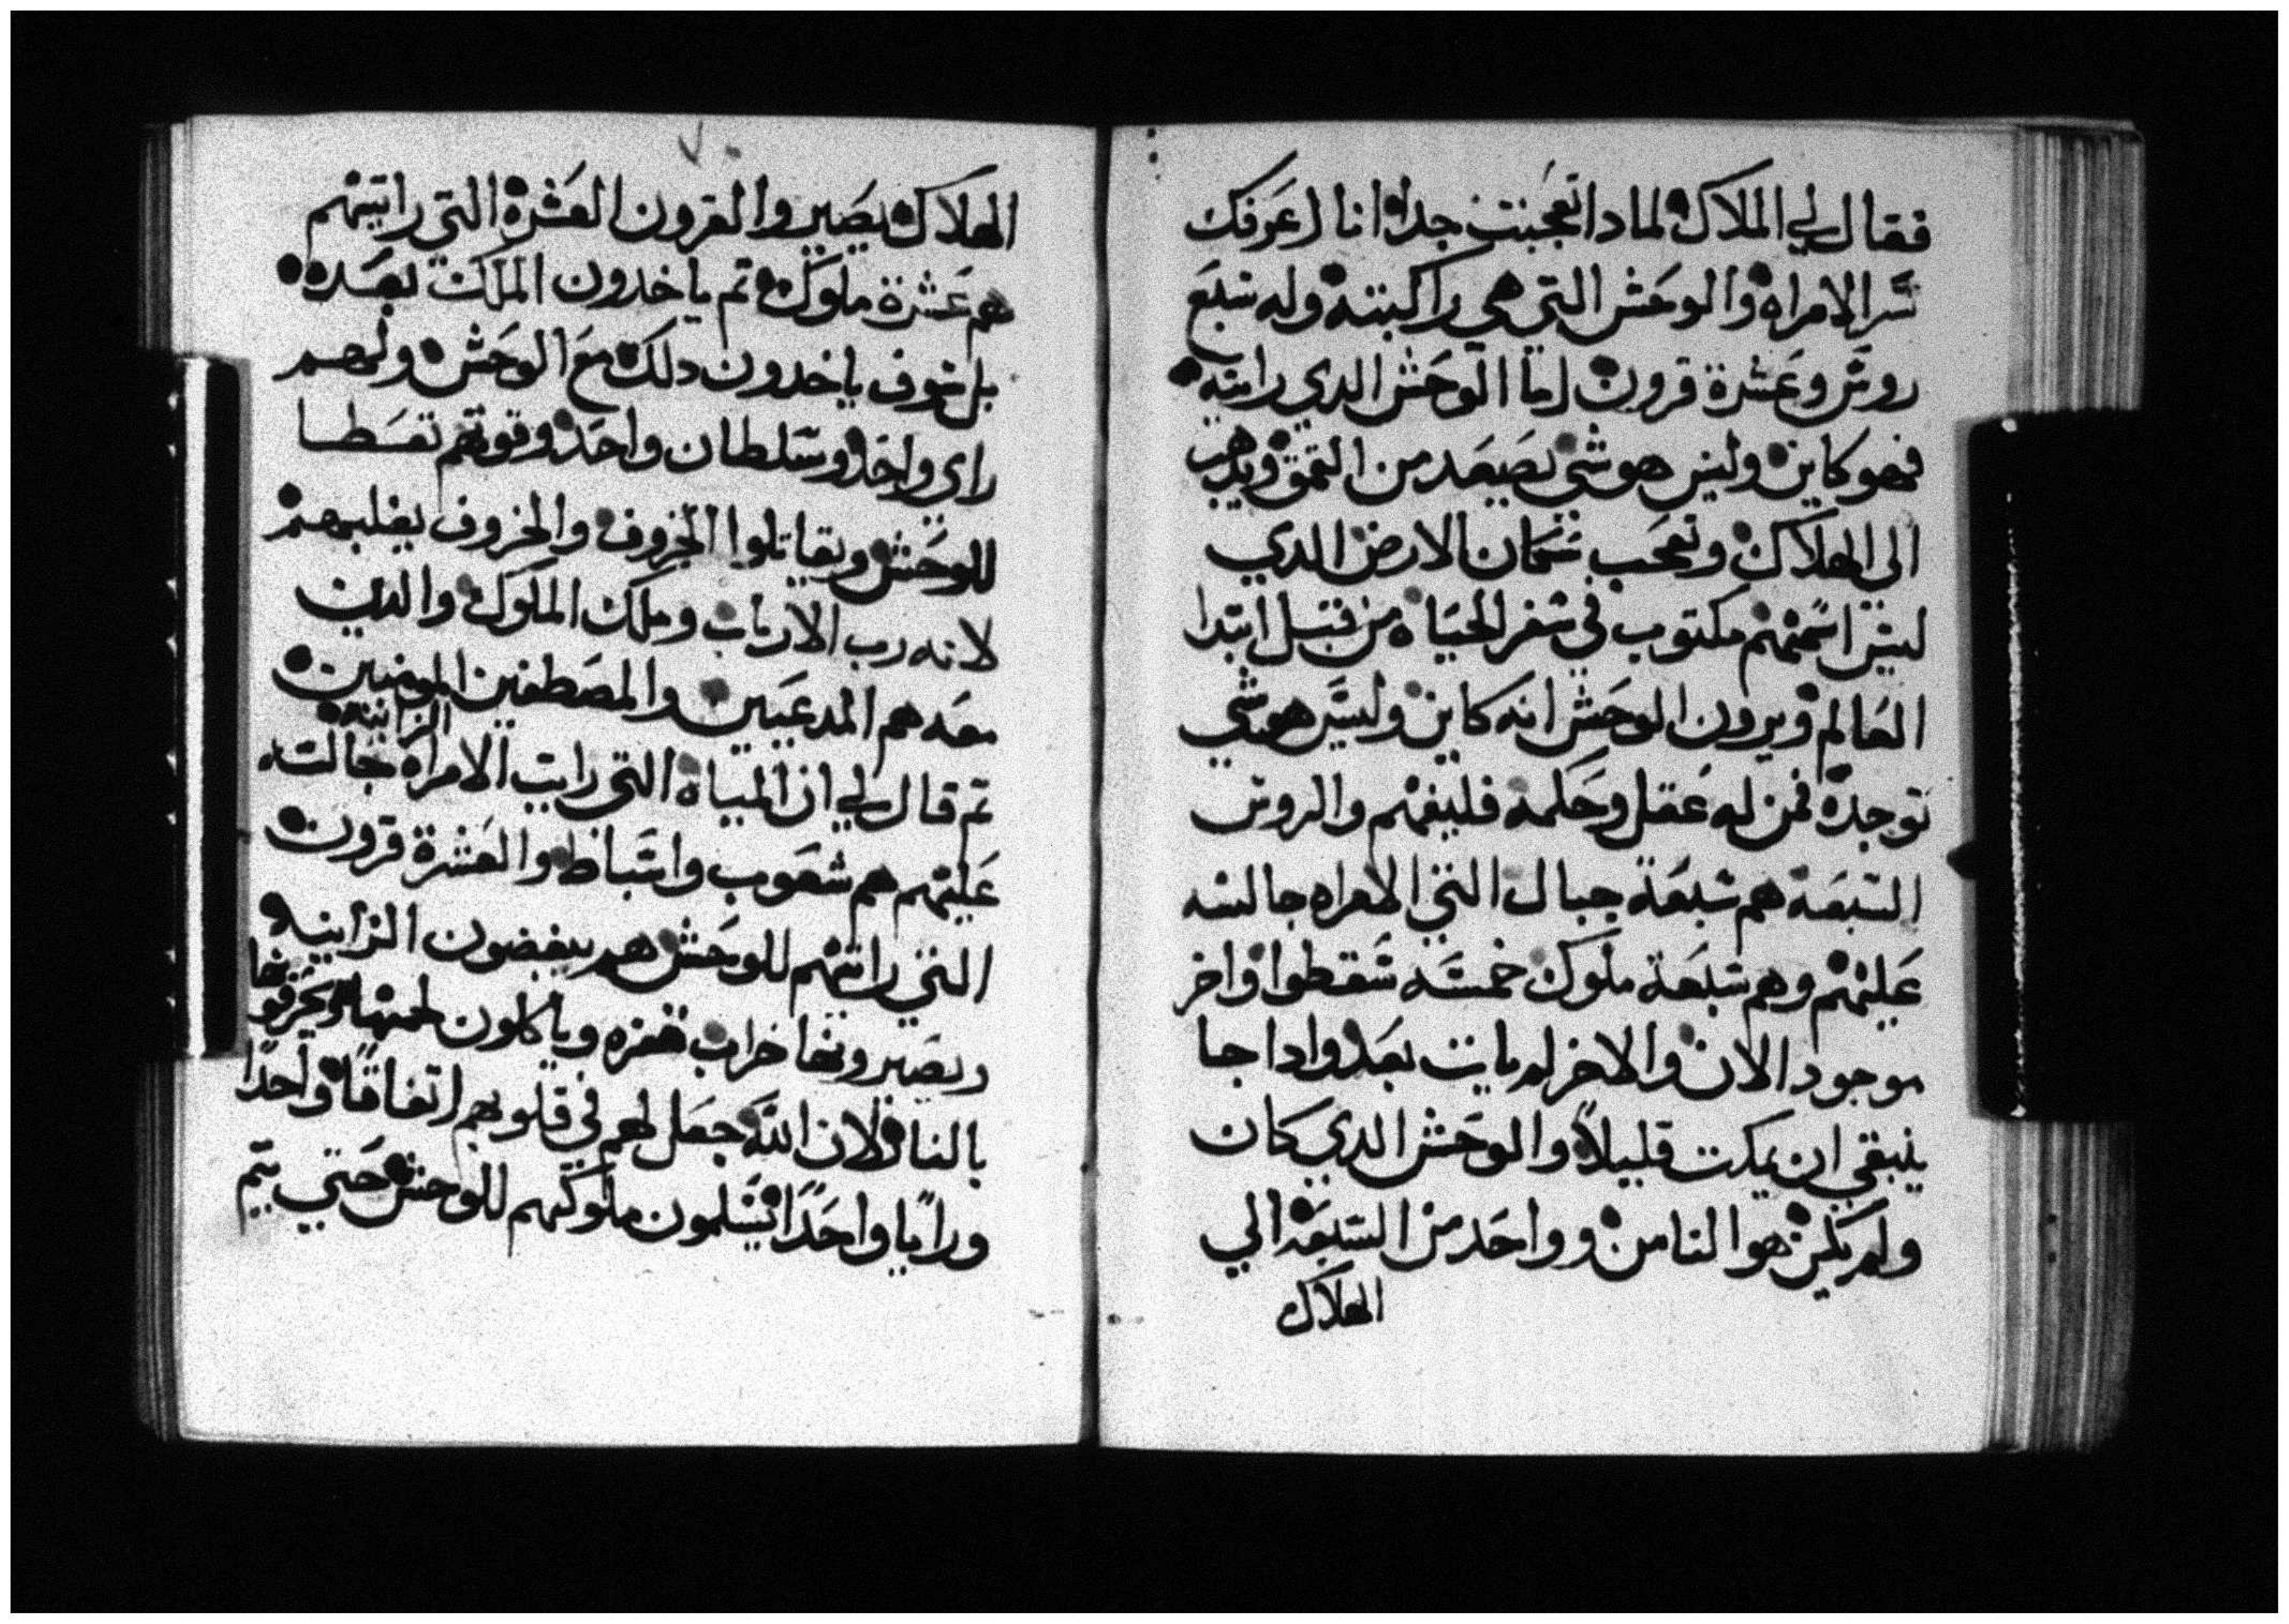 فقال لي الملاك لمادا تعجبت جدا انا اعرفك
سر الامراه والوحش التي هي راكبته وله سبع
روس وعشرة قرون اما الوحش الدي رايته
فهو كاين وليس هو شي يصعد من العمق ويدهب
الى الهلاك وتعجب سكان الارض الدي
ليس اسمهم مكتوب في سفر الحياه من قبل ابتدا
العالم ويرون الوحش انه كاين وليس هو شي
توجده فمن له عقل وحكمه فليفهم والروس
السبعة هم سبعة جبال التي الامراه جالسه
عليهم وهم سبعة ملوك خمسه سقطوا واخر
موجود الان والاخر لم يات بعد وادا جا
ينبغي ان يمكت قليلا والوحش الدي كان
ولم يكن هو التامن وواحد من السبعه الي
الهلاك
٧٠
الهلاك يصير والقرون العشرة التي رايتهم
هم عشرة ملوك تم ياخدون الملك بعده
بل سوف ياخدون دلك مع الوحش ولهم
راي واحد وسلطان واحد وقوتهم تعطا
للوحش ويقاتلوا الخروف والخروف يغلبهم
لانه رب الارباب وملك الملوك والدين
معه هم المدعيين والمصطفين المومنين
تم قال لي ان المياه التي رايت الامراه الزانيه جالسه
عليهم هم شعوب واسباط والعشرة قرون
التي رايتهم للوحش هم يبغضون الزانيه
ويصيرونها خراب قفره وياكلون لحمها ويحرقونها
بالنار لان الله جعل لهم في قلوبهم اتفاقا واحدا
ورايا واحدا يسلمون ملوكهم للوحش حتي يتم